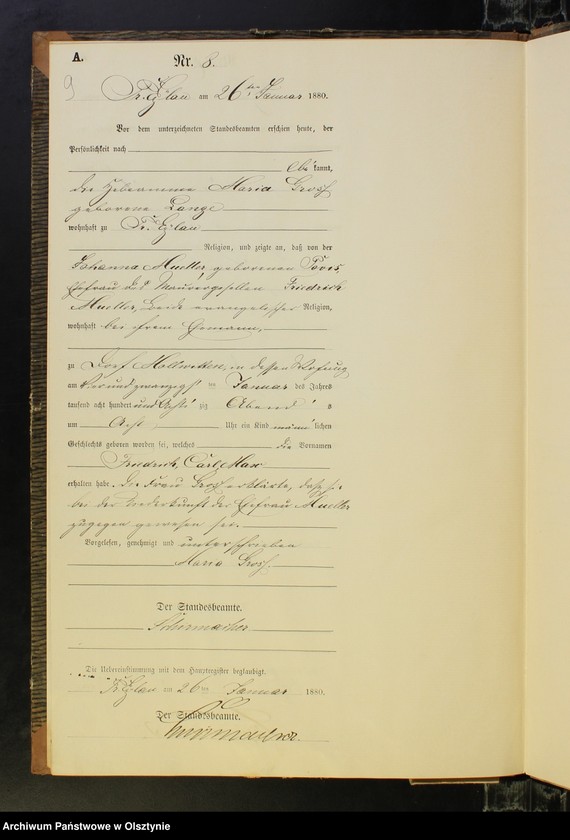 A.
Nr. 8.
9
Pr. Eylau am 26ten Januar 1880.
Vor dem unterzeichneten Standesbeamten erschien heute, der
Persönlichkeit nach
bekannt,
die Hebeamme Maria Gross
geborene Lange
wohnhaft zu Pr. Eylau
Religion, und zeigte an, daß von der
Johanna Mueller, geborenen
Ehefrau des Maurergesellen Friedrich
Mueller, beide evangelischer Religion,
wohnhaft bei ihrem Ehemann,
zu Dorf in dessen Wohnung
am vierundzwanzigsten Januar des Jahres
tausend acht hundert und achtzig Abends
um Acht Uhr ein Kind männlichen
Geschlechts geboren worden sei, welches die Vornamen
Friedrich, Carl, Max
erhalten habe. Die Frau Gross erklärte, daß sie
bei der Niederkunft der Ehefrau Mueller
zugegen gewesen sei.
Vorgelesen, genehmigt und unterschrieben
Maria Gross.
Der Standesbeamte.
Schumacher
Die Uebereinstimmung mit dem Hauptregister beglaubigt.
Pr. Eylau am 26ten Januar 1880.
Der Standesbeamte.
Schumacher.
Archiwum Państwowe w Olsztynie